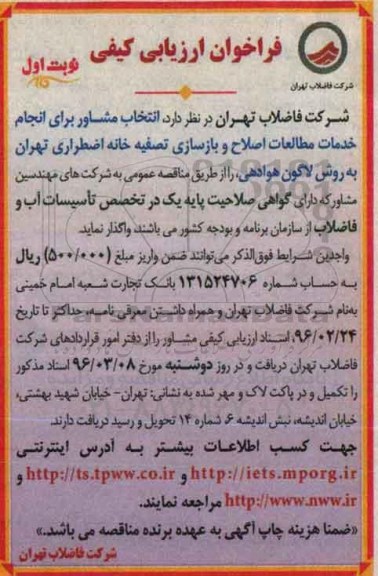 فراخوان ارزیابی کیفی
نوبت اول
شرکت فاضلاب تهران
شرکت فاضلاب تهران در نظر دارد، انتخاب مشاور برای انجام
خدمات مطالعات اصلاح و بازسازی تصفیه خانه اضطراری تهران
به روش لاگون هوادهی، را از طریق مناقصه عمومی به شرکت های مهندسین
مشاور که دارای گواهی صلاحیت پایه یک در تخصص تأسیسات آب و
فاضلاب از سازمان برنامه و بودجه کشور می باشند، واگذار نماید.
واجدین شرایط فوق الذکر می‌توانند ضمن واریز مبلغ (۵۰۰/۰۰۰) ریال
به حساب شماره ۱۳۱۵۲۴۷۰۶ بانک تجارت شعبه امام خمینی
به‌نام شرکت فاضلاب تهران و همراه داشتن معرفی نامه، حداکثر تا تاریخ
۹۶/۰۲/۲۴، اسناد ارزیابی کیفی مشاور را از دفتر امور قراردادهای شرکت
فاضلاب تهران دریافت و در روز دوشنبه مورخ ۹۶/۰۳/۰۸ اسناد مذکور
را تکمیل و در پاکت لاک و مهر شده به نشانی: تهران- خیابان شهید بهشتی،
خیابان اندیشه، نبش اندیشه ۶، شماره ۱۴ تحویل و رسید دریافت دارند.
جهت کسب اطلاعات بیشتر به آدرس اینترنتی
http://iets.mporg.ir و http://ts.tpww.co.ir و
http://www.nww.ir مراجعه نمایند.
«ضمنا هزینه چاپ آگهی به عهده برنده مناقصه می باشد.»
شرکت فاضلاب تهران